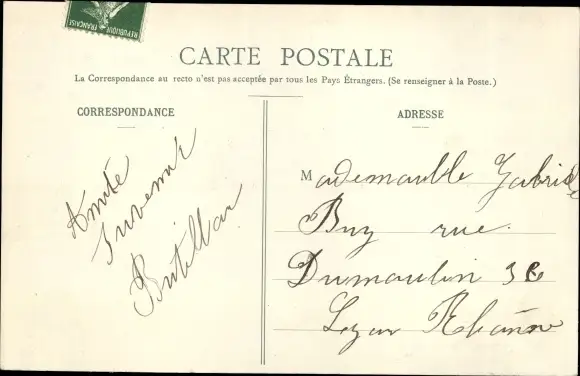 REPUBLIQUE FRANÇAISE
CARTE POSTALE
La Correspondance au recto n'est pas acceptée par tous les Pays Étrangers. (Se renseigner à la Poste.)
CORRESPONDANCE
ADRESSE
Amité
Butillar
Mademoiselle Gabriel
Buz rue.
Dumoulin 36